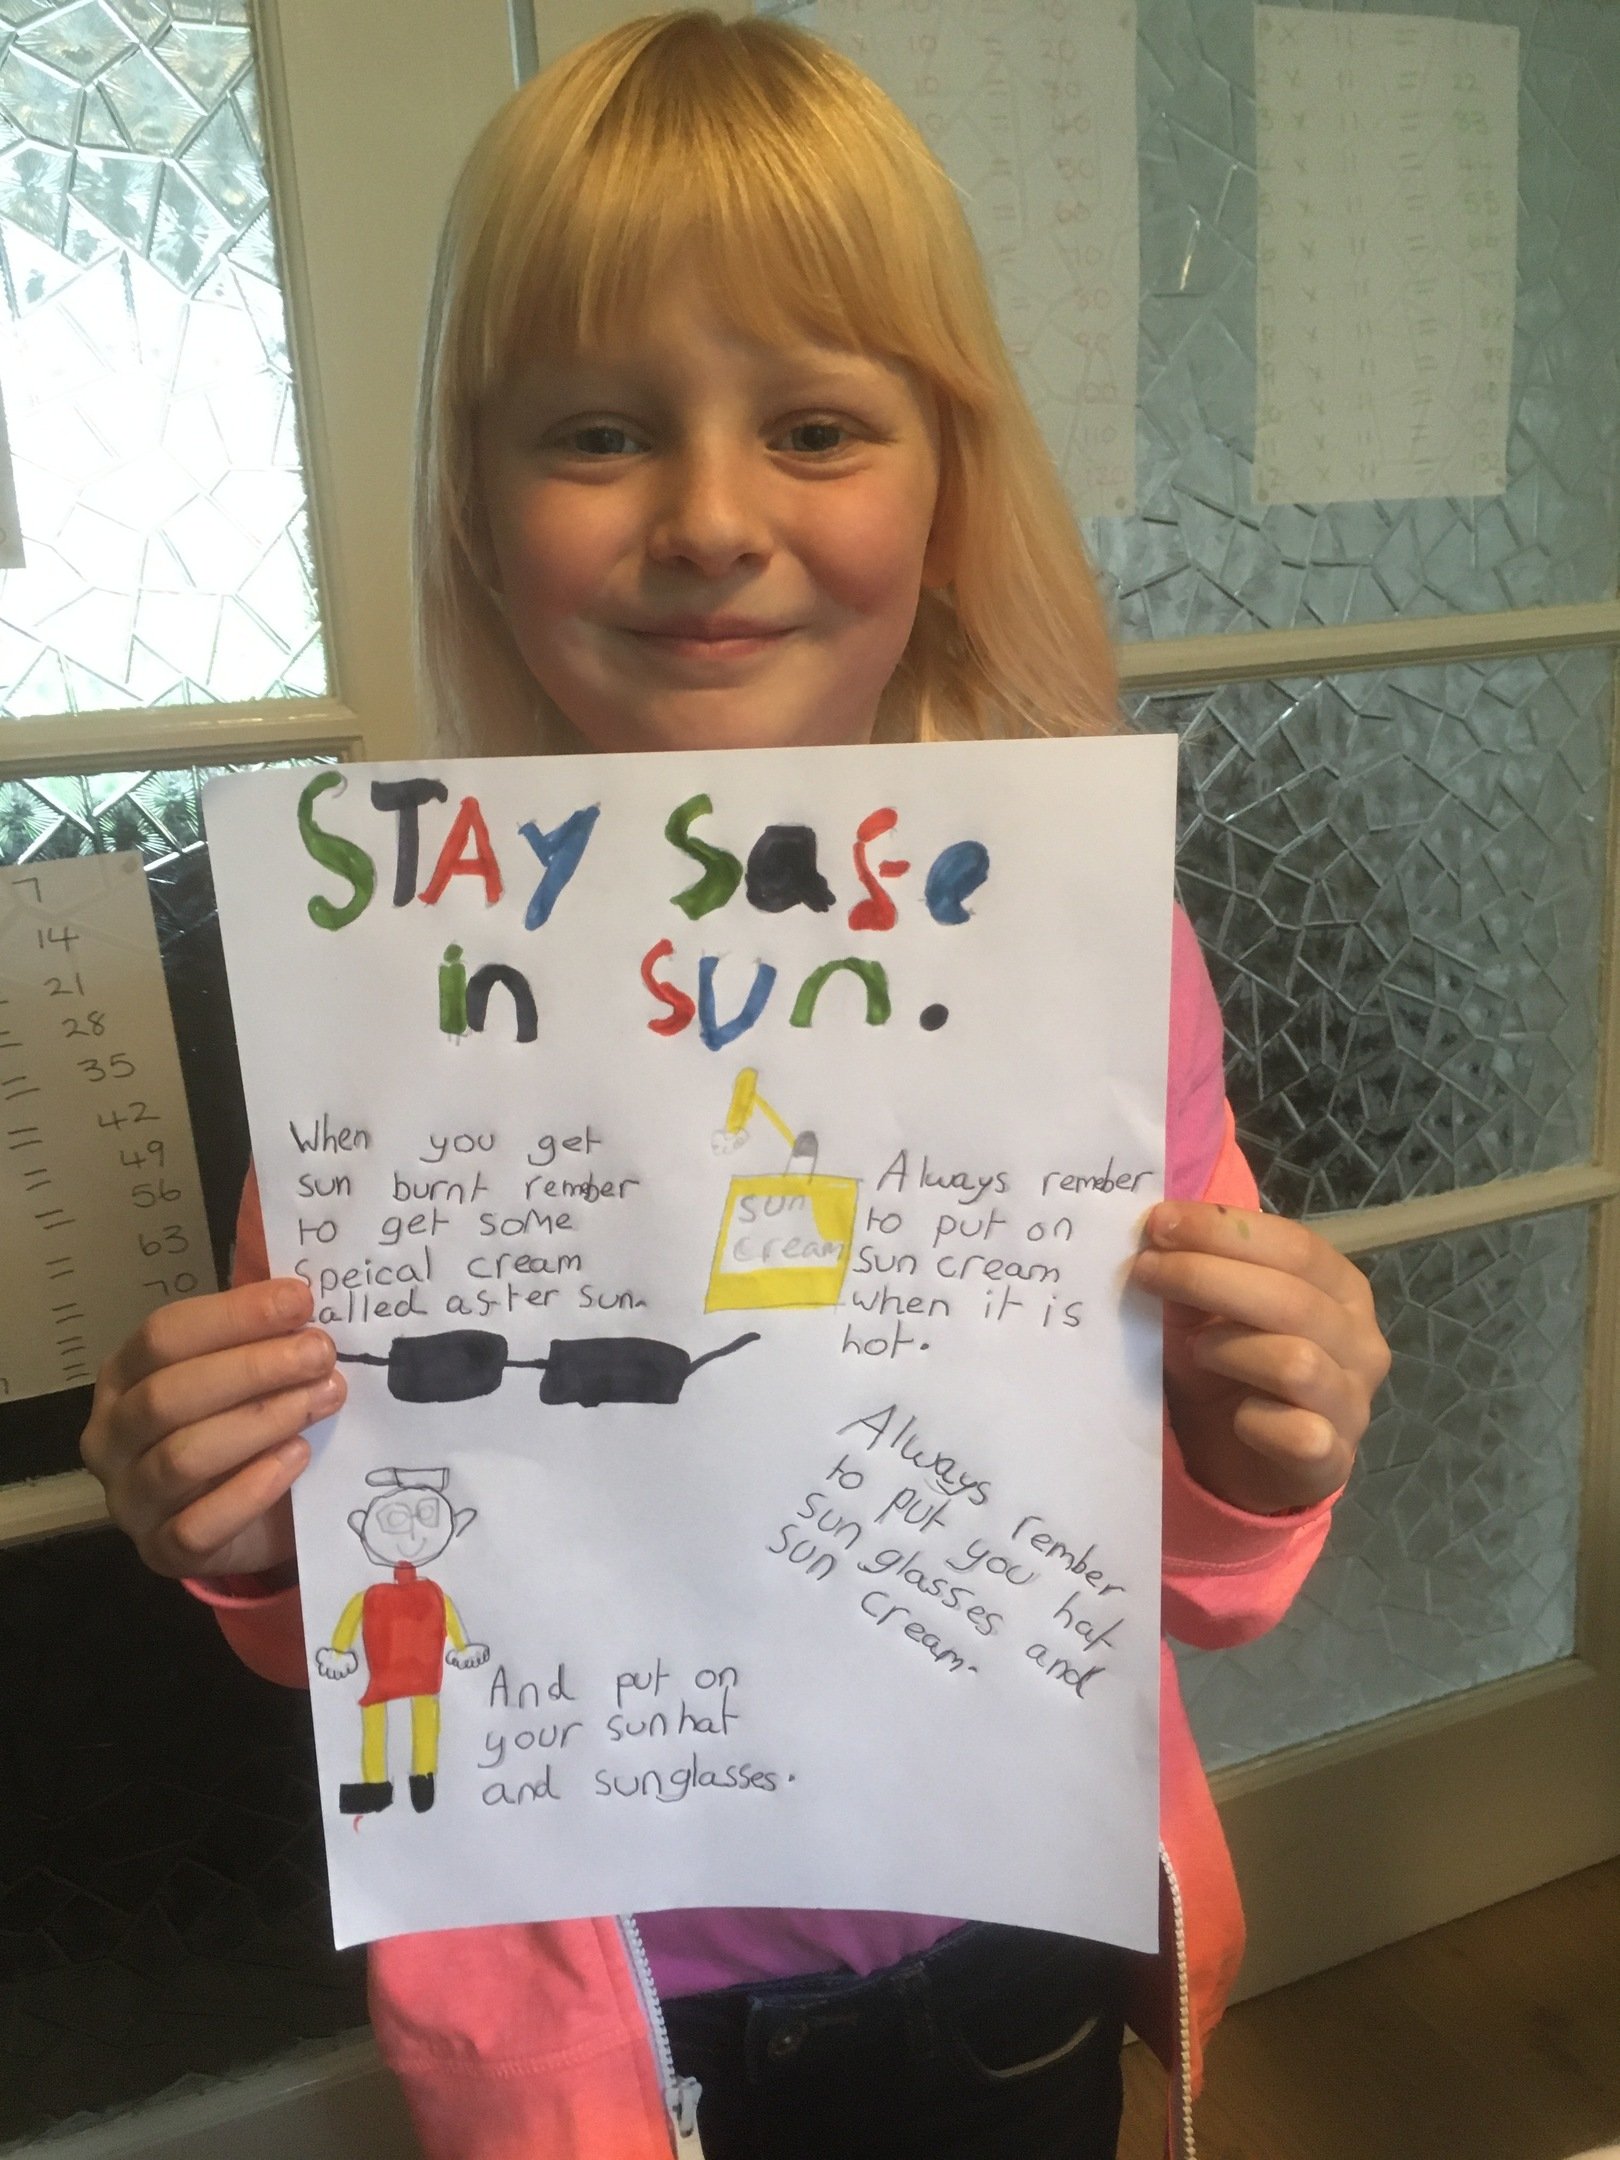 STAY safe
in sun.
When you get
sun burnt rember
to get some
Speical cream
called after sun.
sun
cream
Always rember
to put on
sun cream
when it is
hot.
Always rember
to put you hat
sun glasses and
sun cream.
And put on
your sunhat
and sunglasses.
7
14
21
28
35
42
49
56
63
70